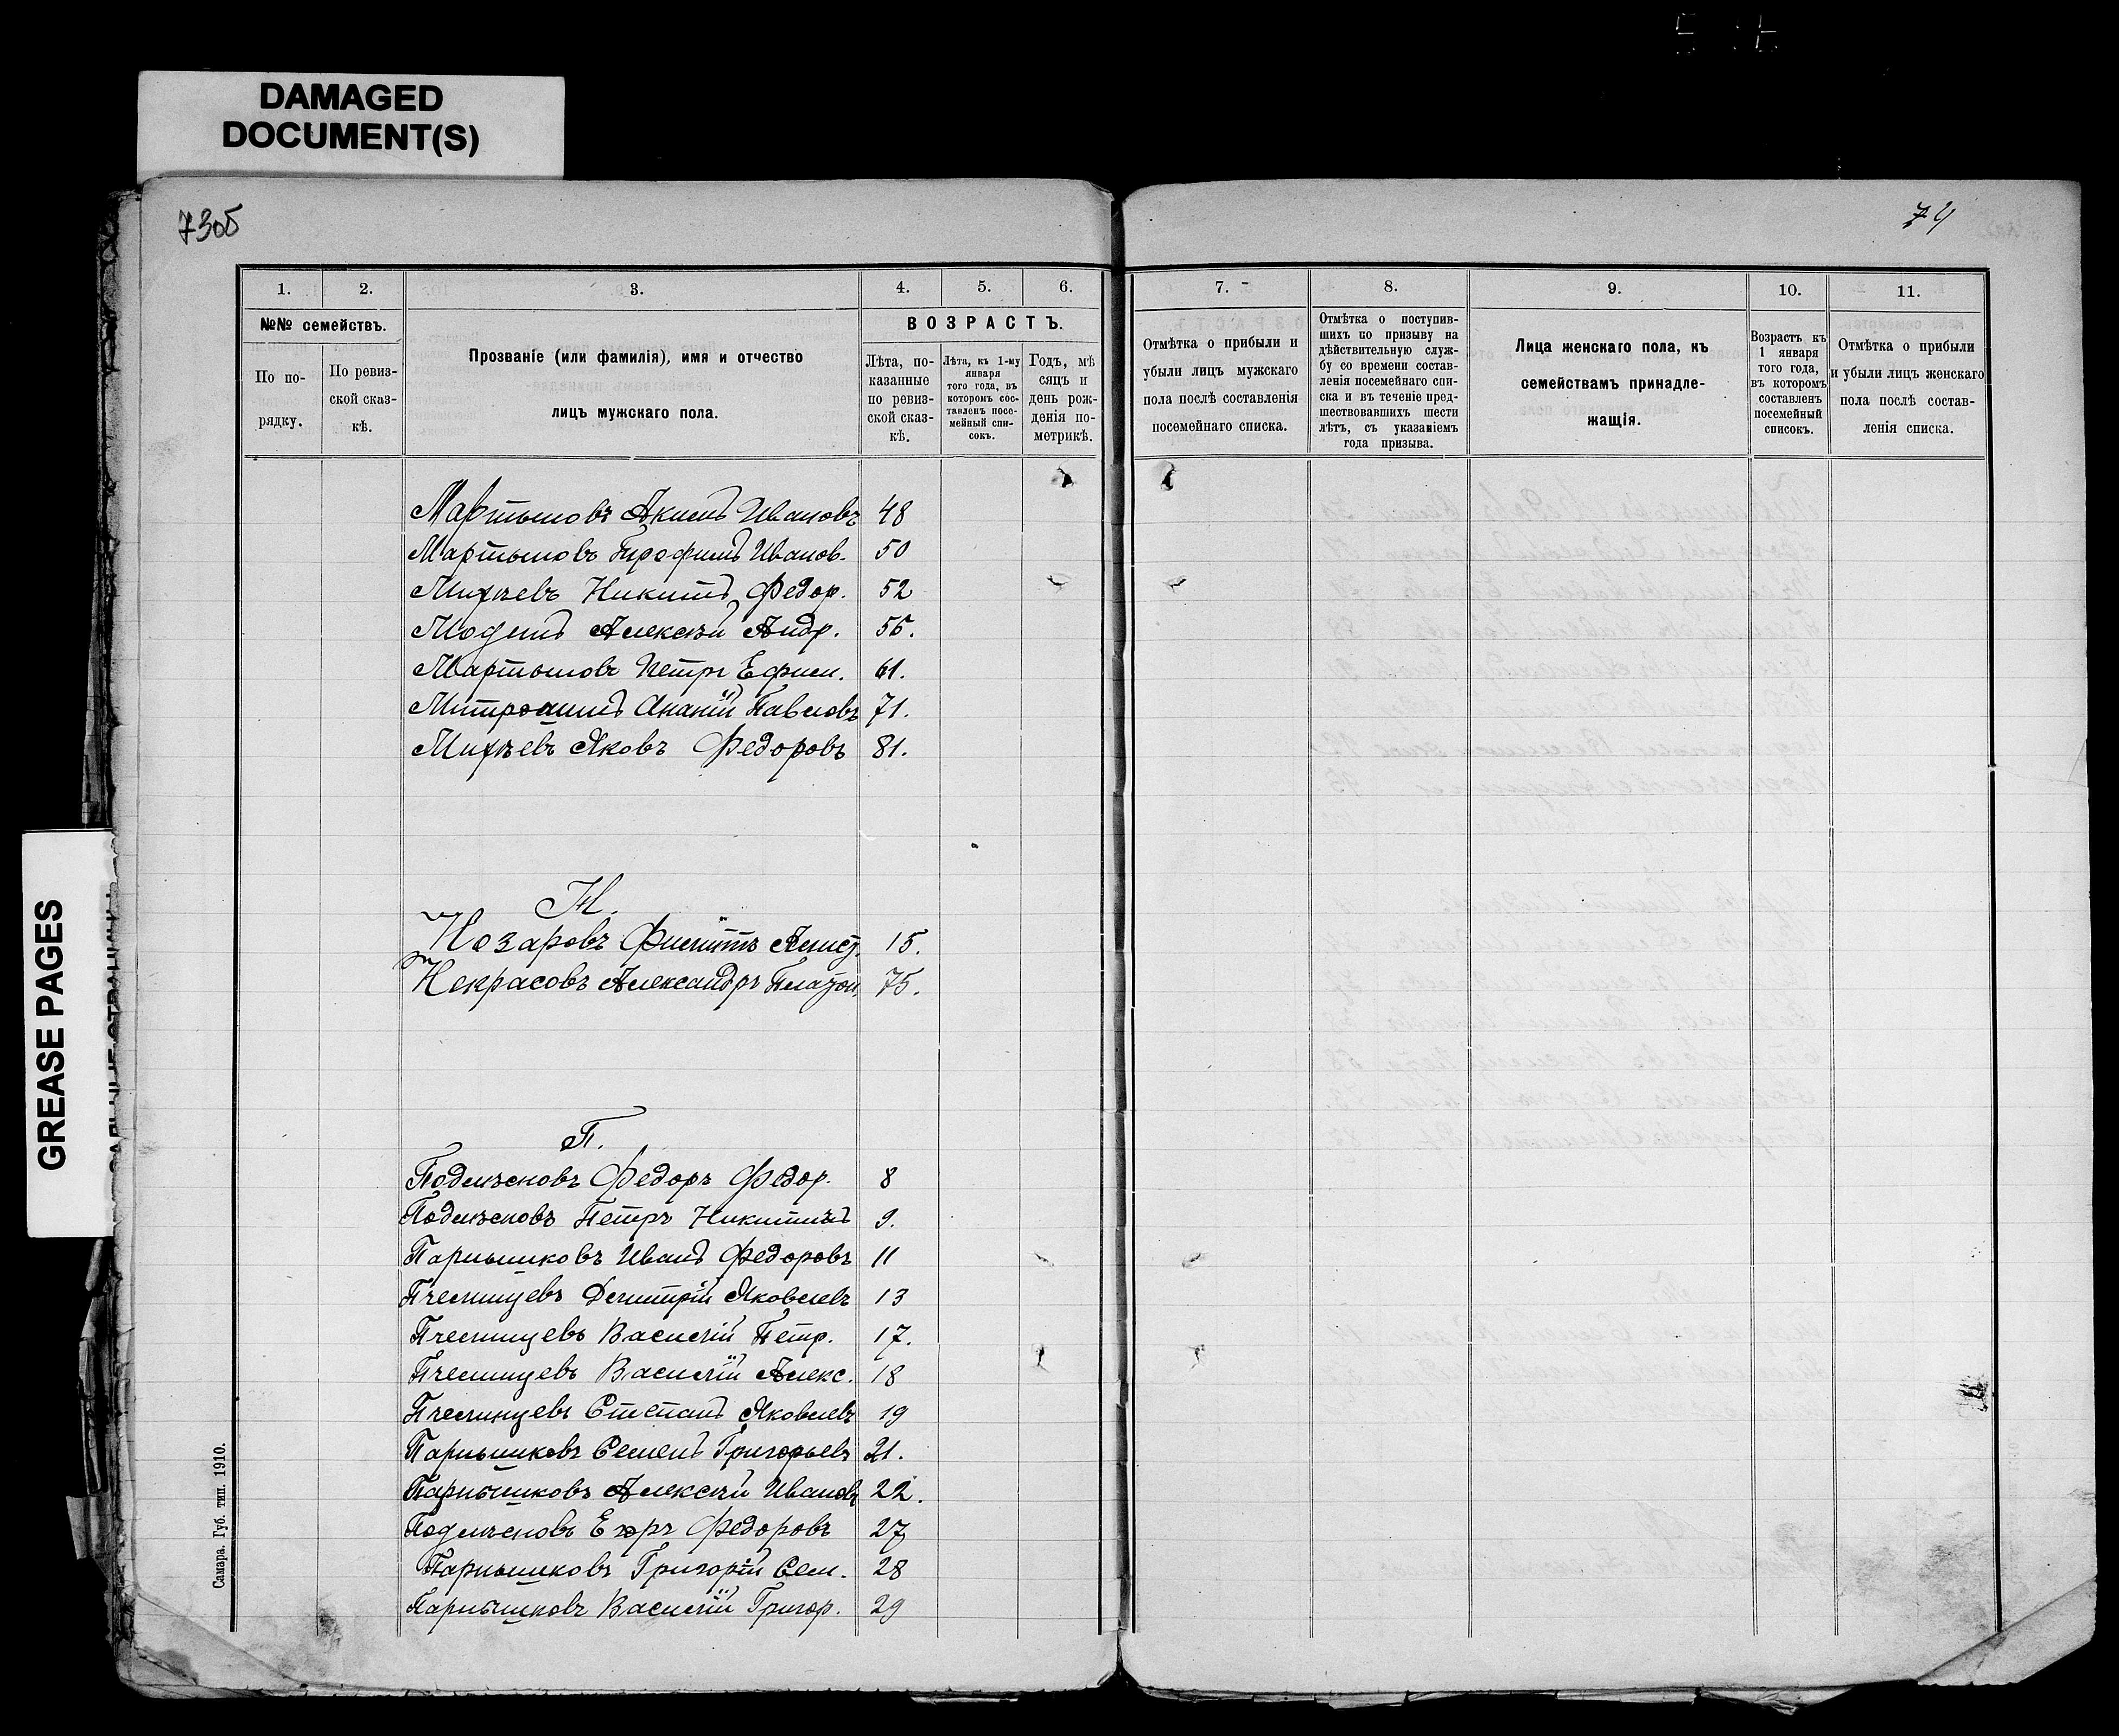 DAMAGED
DOCUMENT(S)
GREASE PAGES
73об
74
1. 2. 3. 4. 5. 6. 7. 8. 9. 10. 11.
№№ семействъ.
По по-
рядку.
По ревиз-
ской сказ-
кѣ.
Прозваніе (или фамилія), имя и отчество
лицъ мужскаго пола.
ВОЗРАСТЪ.
Лѣта, по-
казанные
по ревиз-
ской сказ-
кѣ.
Лѣта, къ 1-му
января
того года, въ
которомъ сос-
тавленъ посе-
мейный спи-
сокъ.
Годъ, мѣ
сяцъ и
день рож-
денія по-
метрикѣ.
Отмѣтка о прибыли и
убыли лицъ мужскаго
пола послѣ составленія
посемейнаго списка.
Отмѣтка о поступив-
шихъ по призыву на
дѣйствительную служ-
бу со времени состав-
ленія посемейнаго спи-
ска и въ теченіе пред-
шествовавшихъ шести
лѣтъ, съ указаніемъ
года призыва.
Лица женскаго пола, къ
семействамъ принадле-
жащія.
Возрастъ къ
1 января
того года,
въ которомъ
составленъ
посемейный
списокъ.
Отмѣтка о прибыли
и убыли лицъ женскаго
пола послѣ состав-
ленія списка.
Мартыновъ Акимъ Ивановъ 48
Мартыновъ Иванов. 50
Михѣевъ Никита Федор. 52
Модинъ Алексѣй Андр. 55.
Мартыновъ Петръ Ефим. 61.
Митрошинъ Ананій Павловъ 71.
Михѣевъ Яковъ Федоровъ 81.
Н.
Нозаровъ Филиппъ 15.
Некрасовъ Александръ Платон. 75.
П.
Подлѣсновъ Федоръ Федор. 8
Подлѣсновъ Петръ Никитинъ 9.
Парнышковъ Иванъ Федоровъ 11
Пчелинцевъ Дмитрій Яковлевъ 13
Пчелинцевъ Василій Петр. 17.
Пчелинцевъ Василій Алекс. 18
Пчелинцевъ Степанъ Яковлевъ 19
Парнышковъ Семенъ Григорьевъ 21.
Парнышковъ Алексѣй Ивановъ 22.
Подлѣсновъ Егоръ Федоровъ 27
Парнышковъ Григорій Сем. 28
Парнышковъ Василій Григор. 29
Самара. Губ. тип. 1910.